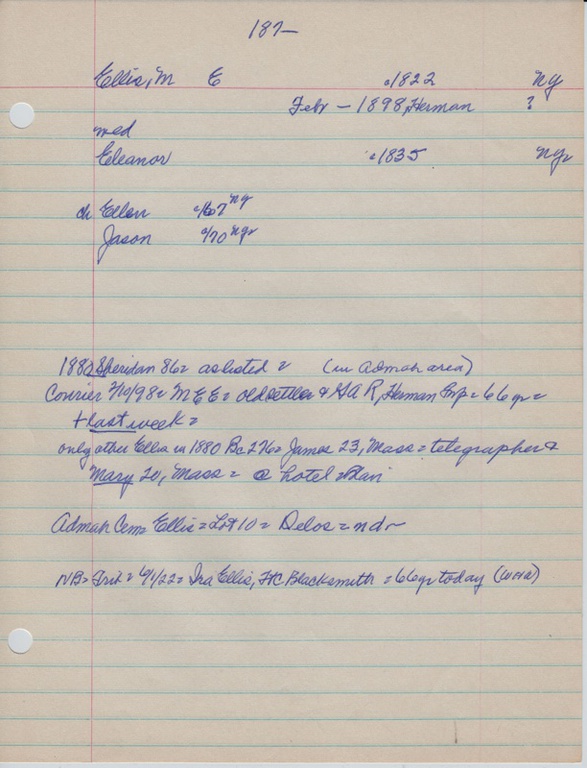 187-
Ellis, M E c1822 NY
Febr - 1898, Herman ?
med
Eleanor c1835 NY
ch Ellen c/67 NY
Jason c/70 NY
1880 Sheridan 86= as listed = (in Admah area)
Courier 2/10/98= M E E = old settler & GAR, Herman = 66 yr =
+ last week =
only other Ellis in 1880 Bc 276= James 23, Mass = telegrapher &
Mary 20, Mass = @ hotel =
Admah Cem= Ellis = Lot 10 = Delos = nd
NB= Trib = 6/1/22= Ira Ellis, FtC Blacksmith = 66 yr today (WHA)